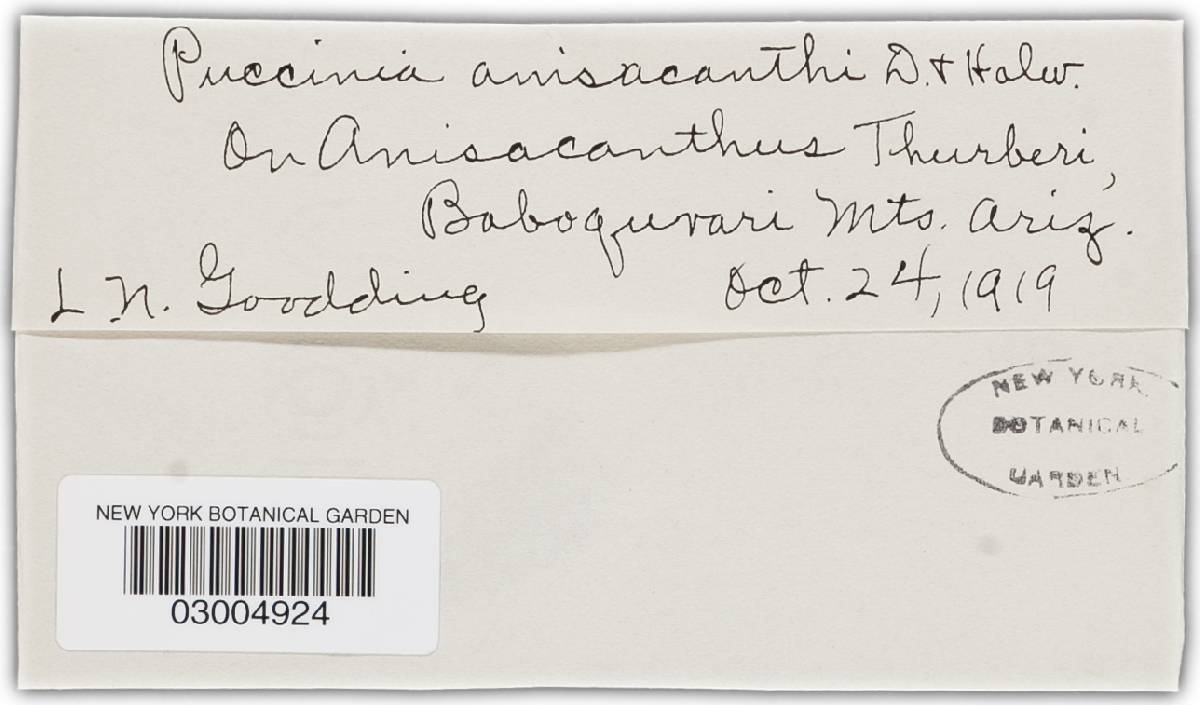 Puccinia anisacanthi D. & Holw.
On Anisacanthus Thurberi,
Baboquvari Mts. Ariz.
L N. Goodding Oct. 24, 1919
NEW YORK
BOTANICAL
GARDEN
NEW YORK BOTANICAL GARDEN
03004924